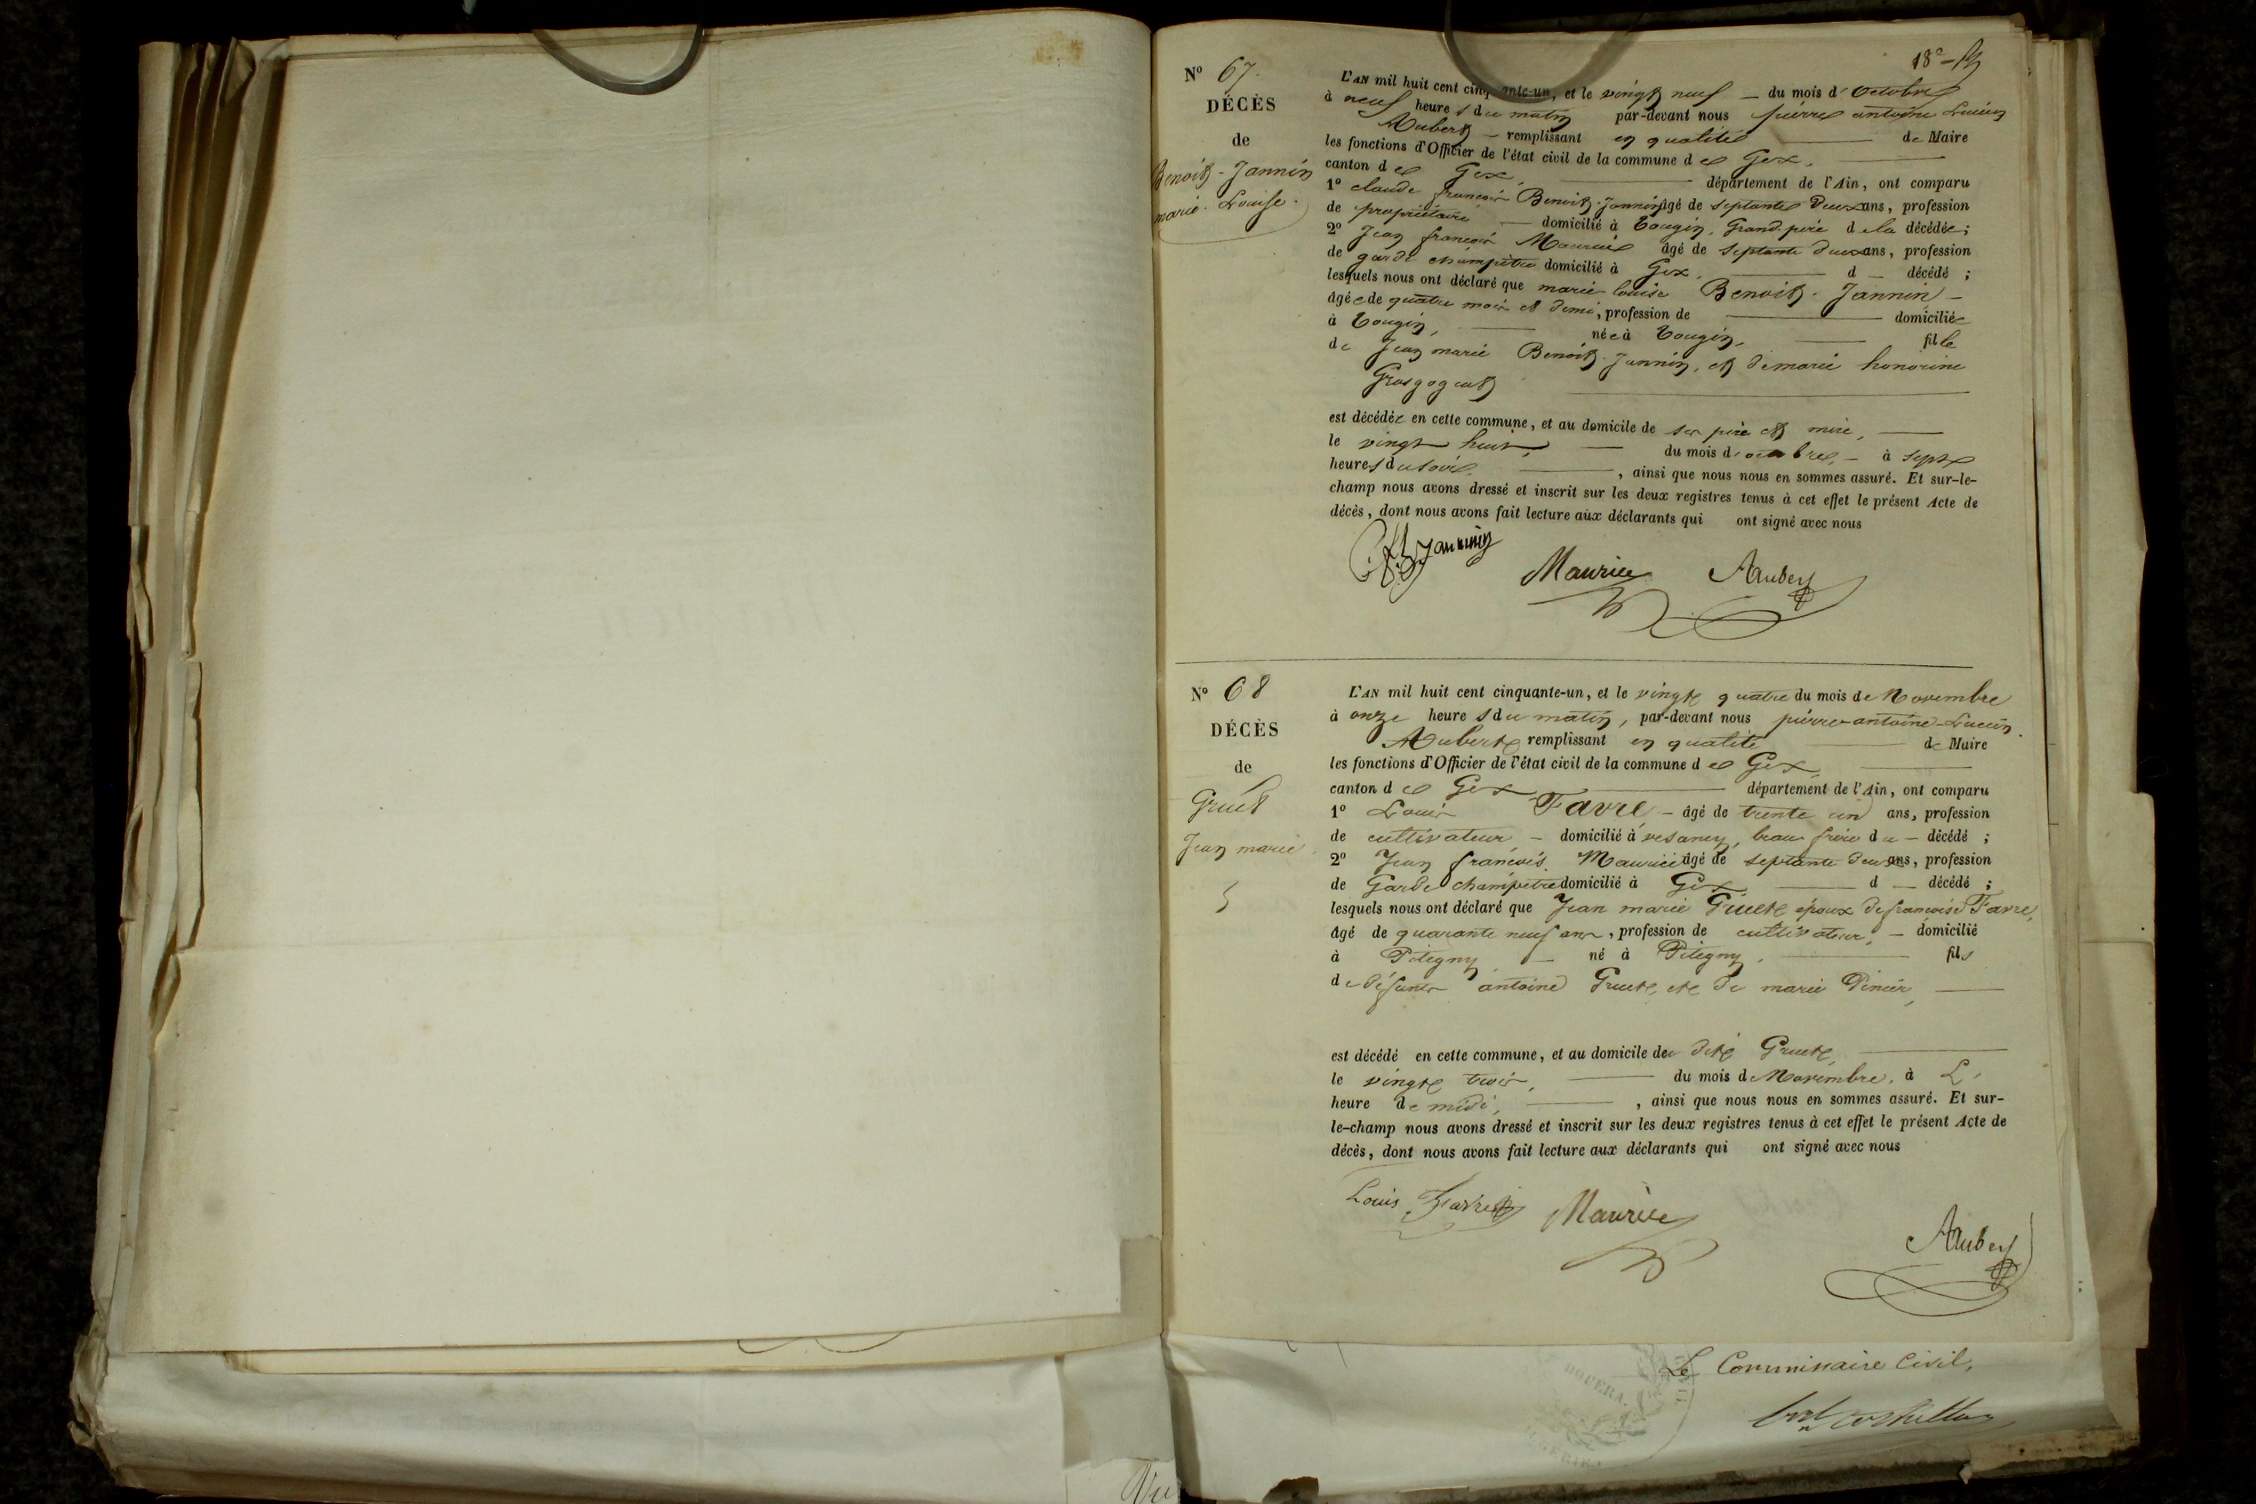 18e
N° 67.
DÉCÈS
de
Benoit-Jannin
marie-Louise.
L'AN mil huit cent cinquante-un, et le vingt neuf — du mois d'Octobre
à neuf heures du matin par-devant nous pierre antoine Lucien
Aubert — remplissant en qualité de Maire
les fonctions d'Officier de l'état civil de la commune de Gex,
canton de Gex, département de l'Ain, ont comparu
1° claude françois Benoit-Jannin âgé de septante deux ans, profession
de propriétaire — domicilié à Tougin, Grand-père de la décédée;
2° Jean françois Maurice âgé de septante deux ans, profession
de garde champêtre domicilié à Gex, d — décédé;
lesquels nous ont déclaré que marie-louise Benoit-Jannin —
âgée de quatre mois et demi, profession de domiciliée
à Tougin, née à Tougin, fille
de Jean marie Benoit-Jannin, et de marie honorine
Grosgogeat
est décédée en cette commune, et au domicile de ses père et mère,
le vingt huit, du mois d'octobre, — à sept
heures du soir, ainsi que nous nous en sommes assuré. Et sur-le-
champ nous avons dressé et inscrit sur les deux registres tenus à cet effet le présent Acte de
décès, dont nous avons fait lecture aux déclarants qui ont signé avec nous
Jannin
Maurice Aubert
N° 68
DÉCÈS
de
Gruet
Jean marie
L'AN mil huit cent cinquante-un, et le vingt quatre du mois de Novembre
à onze heures du matin, par-devant nous pierre-antoine-Lucien
Aubert remplissant en qualité de Maire
les fonctions d'Officier de l'état civil de la commune de Gex,
canton de Gex département de l'Ain, ont comparu
1° Louis Favre — âgé de trente un ans, profession
de cultivateur — domicilié à vesancy, beau frère du — décédé;
2° Jean françois Maurice âgé de septante deux ans, profession
de Garde champêtre domicilié à Gex d — décédé;
lesquels nous ont déclaré que Jean marie Gruet époux de françoise Favre,
âgé de quarante neuf ans, profession de cultivateur, — domicilié
à Pitegny — né à Pitegny, fils
de défunts antoine Gruet, et de marie Pinier,
est décédé en cette commune, et au domicile de dit Gruet,
le vingt trois, du mois de Novembre, à L'
heure de midi, ainsi que nous nous en sommes assuré. Et sur-
le-champ nous avons dressé et inscrit sur les deux registres tenus à cet effet le présent Acte de
décès, dont nous avons fait lecture aux déclarants qui ont signé avec nous
Louis Favre Maurice
Aubert
Le Commissaire Civil,
Vu